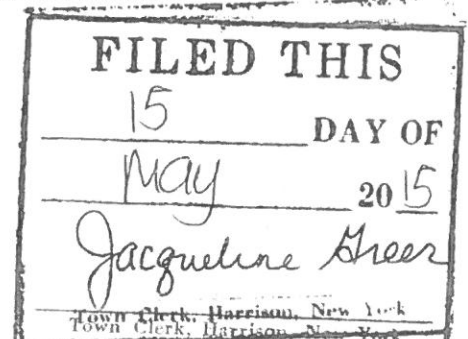 FILED THIS
15 DAY OF
May 2015
Jacqueline Greer
Town Clerk, Harrison, New York
Town Clerk, Harrison, New York